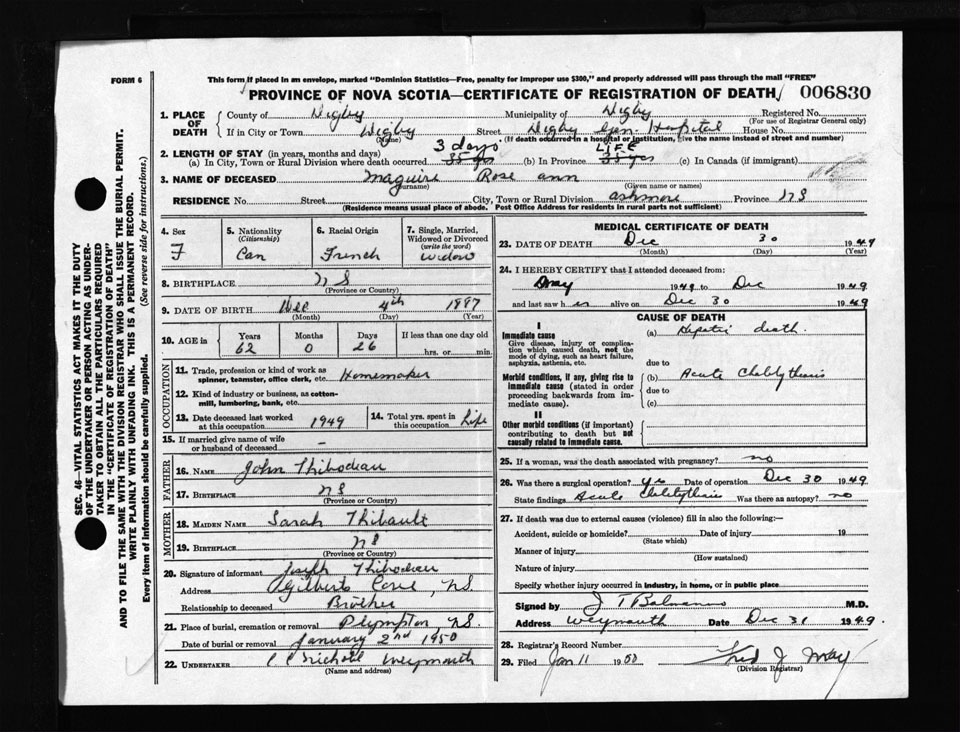 FORM 6
This form if placed in an envelope, marked "Dominion Statistics—Free, penalty for improper use $300," and properly addressed will pass through the mail "FREE"
PROVINCE OF NOVA SCOTIA—CERTIFICATE OF REGISTRATION OF DEATH 006830
SEC. 46—VITAL STATISTICS ACT MAKES IT THE DUTY
OF THE UNDERTAKER OR PERSON ACTING AS UNDER-
TAKER TO OBTAIN ALL THE PARTICULARS REQUIRED
IN THE "CERTIFICATE OF REGISTRATION OF DEATH"
AND TO FILE THE SAME WITH THE DIVISION REGISTRAR WHO SHALL ISSUE THE BURIAL PERMIT.
WRITE PLAINLY WITH UNFADING INK. THIS IS A PERMANENT RECORD.
Every item of Information should be carefully supplied. (See reverse side for instructions.)
1. PLACE OF DEATH County of Digby Municipality of Digby Registered No.
(For use of Registrar General only)
If in City or Town Digby Street Digby Gen Hospital House No.
(Name) (If death occurred in a hospital or institution, give the name instead of street and number)
2. LENGTH OF STAY (in years, months and days) 3 days LIFE
(a) In City, Town or Rural Division where death occurred 35 yrs (b) In Province 38 yrs (c) In Canada (if immigrant)
3. NAME OF DECEASED Maguire Rose ann
(Surname) (Given name or names)
RESIDENCE No. Street City, Town or Rural Division ashmore Province NS
(Residence means usual place of abode. Post Office Address for residents in rural parts not sufficient)
4. Sex F
5. Nationality (Citizenship) Can
6. Racial Origin French
7. Single, Married, Widowed or Divorced (write the word) Widow
8. BIRTHPLACE NS
(Province or Country)
9. DATE OF BIRTH Dec 4th 1887
(Month) (Day) (Year)
10. AGE in Years 62 Months 0 Days 26 If less than one day old hrs. or min.
OCCUPATION
11. Trade, profession or kind of work as spinner, teamster, office clerk, etc. Homemaker
12. Kind of industry or business, as cotton-mill, lumbering, bank, etc.
13. Date deceased last worked at this occupation 1949
14. Total yrs. spent in this occupation Life
15. If married give name of wife or husband of deceased –
FATHER
16. NAME John Thibodeau
17. BIRTHPLACE NS
(Province or Country)
MOTHER
18. MAIDEN NAME Sarah Thibault
19. BIRTHPLACE NS
(Province or Country)
20. Signature of informant Joseph Thibodeau
Address Gilberts Cove, NS.
Relationship to deceased Brother
21. Place of burial, cremation or removal Plympton, NS.
Date of burial or removal January 2nd 1950
22. UNDERTAKER Weymouth
(Name and address)
MEDICAL CERTIFICATE OF DEATH
23. DATE OF DEATH Dec 30 1949
(Month) (Day) (Year)
24. I HEREBY CERTIFY that I attended deceased from:
May 1949 to Dec 1949
and last saw her alive on Dec 30 1949
CAUSE OF DEATH
I
Immediate cause
Give disease, injury or complication which caused death, not the mode of dying, such as heart failure, asphyxia, asthenia, etc.
(a) Hepatic death.
due to
Morbid conditions, if any, giving rise to immediate cause (stated in order proceeding backwards from immediate cause).
(b) Acute
due to
(c)
II
Other morbid conditions (if important) contributing to death but not causally related to immediate cause.
25. If a woman, was the death associated with pregnancy? no
26. Was there surgical operation? yes Date of operation Dec 30 1949
State findings Acute Was there an autopsy? no
27. If death was due to external causes (violence) fill in also the following:—
Accident, suicide or homicide? Date of injury 19
(State which)
Manner of injury
(How sustained)
Nature of injury
Specify whether injury occurred in industry, in home, or in public place
Signed by J T Balmanno M.D.
Address Weymouth Date Dec 31 1949.
28. Registrar's Record Number
29. Filed Jan 11 1950 Fred J May
(Division Registrar)